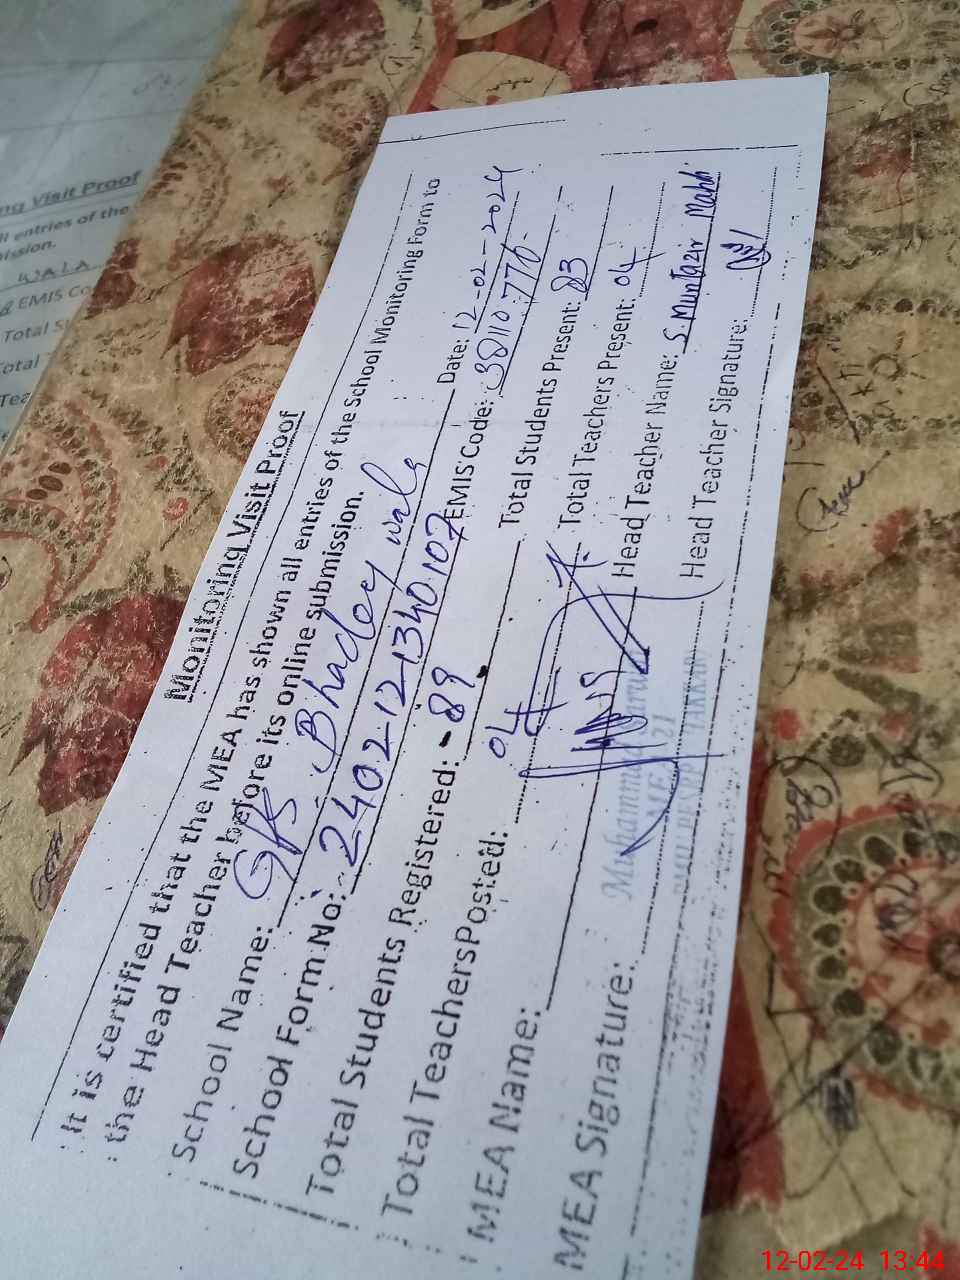 Monitoring Visit Proof
It is certified that the MEA has shown all entries of the School Monitoring Form to
the Head Teacher before its online submission.
School Name: GPS Bhadey wala Date: 12-02-2024
School Form No: 2402-12-1340107 EMIS Code: 38110776
Total Students Registered: 89 Total Students Present: 83
Total Teachers Posted: 04 Total Teachers Present: 04
MEA Name: Head Teacher Name: S. Muntazir
MEA Signature: Head Teacher Signature:
Muhammad
MEA 21
ng Visit Proof
ll entries of the
ission.
WALA
EMIS Co
Total St
otal T
Tea
12-02-24 13:44